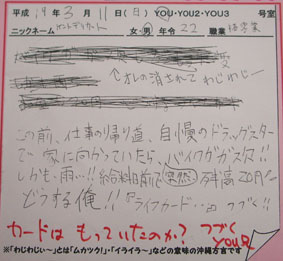 平成 19年 3月 11日(日) YOU・YOU2・YOU3 号室
ニックネーム 女・男 年令 22 職業
オレの消されてわじわじー
この前、仕事の帰り道、自慢のドラッグスター
で家に向かっていたら、バイクがガス欠!!
しかも…雨…!!給料日前で突然、残高20円!!
どうする俺!!『ライフカード…』つづく!!
カードは もっていたのか? つづく
YOU兄
※「わじわじぃ~」とは「ムカツク!」・「イライラ~」などの意味の沖縄方言です